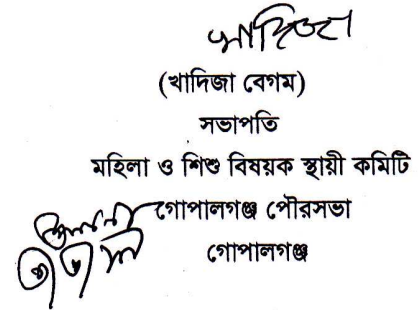 (খাদিজা বেগম)
সভাপতি
মহিলা ও শিশু বিষয়ক স্থায়ী কমিটি
গোপালগঞ্জ পৌরসভা
গোপালগঞ্জ